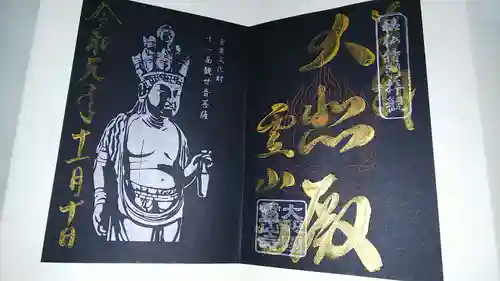 令和元年
十一月十日
重要文化財
十一面観世音菩薩
大悲殿
霊山